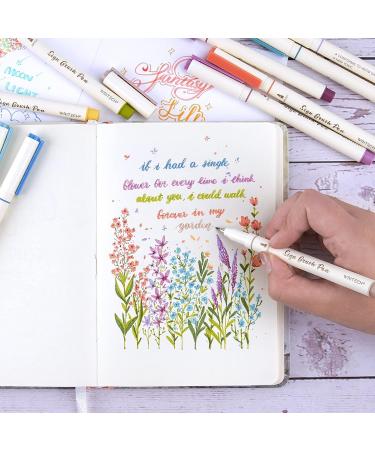 MOON
LIGHT
Sign Brush Pen WRITECH
Fantasy
Life
Sign Brush Pen
Sign Brush Pen
if i had a single
flower for every time i think
about you, i could walk
forever in my
garden
Sign Brush Pen WRITECH